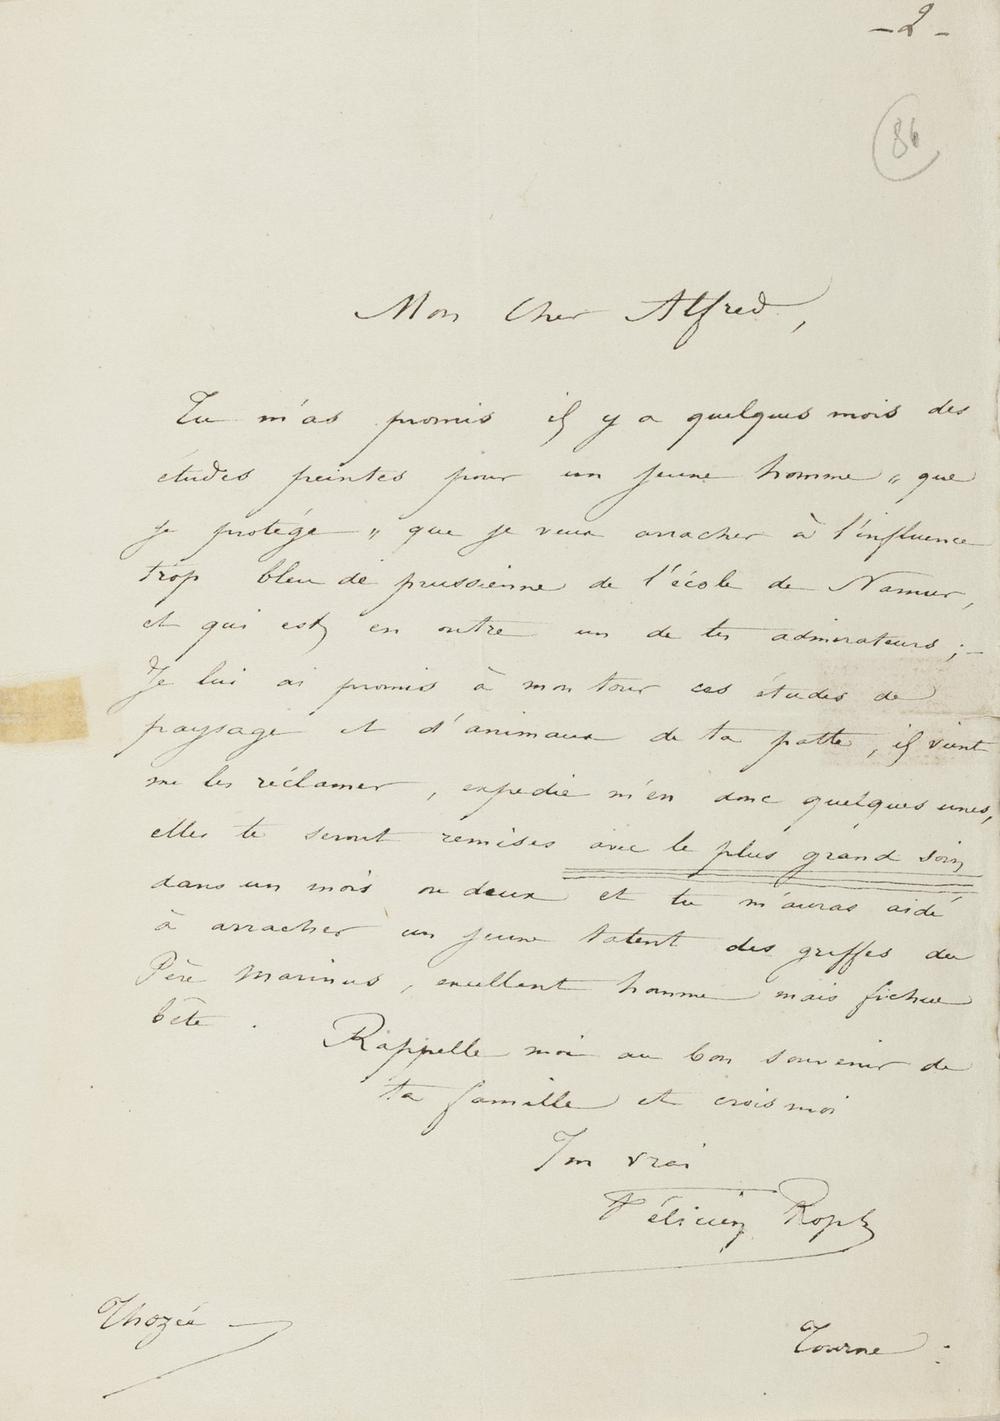 – 2 –
86
Mon Cher Alfred,
Tu m'as promis il y a quelques mois des
études peintes pour un jeune homme " que
je protége " que je veux arracher à l'influence
trop bleu de prussienne de l'école de Namur,
et qui est en outre un de tes admirateurs ; –
Je lui ai promis à mon tour ces études de
paysage et d'animaux de ta patte, il vient
me les réclamer, expedie m'en donc quelques unes,
elles te seront remises avec le plus grand soin
dans un mois ou deux et tu m'auras aidé
à arracher un jeune talent des griffes du
Père Marinus, excellent homme mais fichue
bête.
Rappelle moi au bon souvenir de
ta famille et crois moi
Ton vrai
Félicien Rops
Thozée
Tourne :